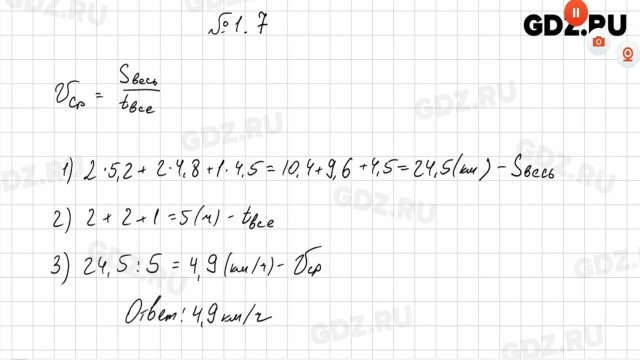 №1.7
GDZ.RU
Vср = Sвесь / tвсе
1) 2·5,2 + 2·4,8 + 1·4,5 = 10,4 + 9,6 + 4,5 = 24,5 (км) - Sвесь
2) 2 + 2 + 1 = 5 (ч) - tвсе
3) 24,5 : 5 = 4,9 (км/ч) - Vср
Ответ: 4,9 км/ч
GDZ.RU
GDZ.RU
GDZ.RU
GDZ.RU
GDZ.RU
GDZ.RU
GDZ.RU